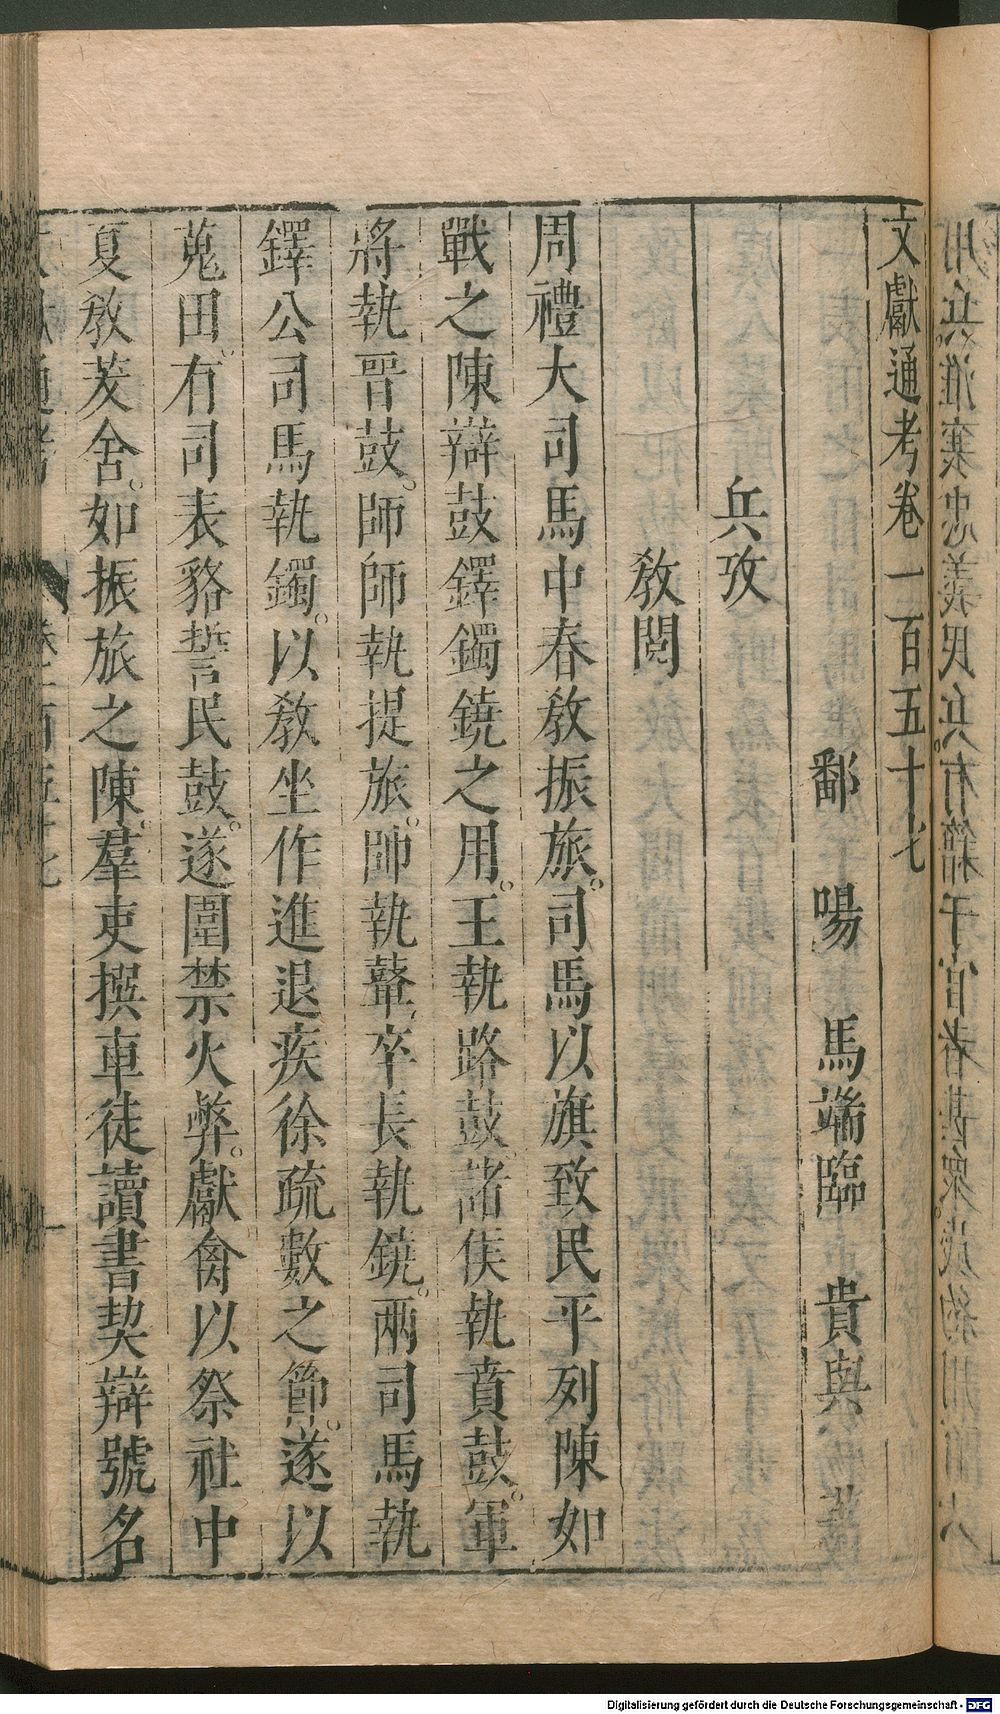 文獻通考卷一百五十七
鄱陽馬端臨貴與著
兵攷
敎閱
周禮大司馬中春敎振旅。司馬以旗致民平列陳如
戰之陳辯鼓鐸鐲鐃之用。王執路鼓諸侯執賁鼓。軍
將執晉鼓。師師執提。旅師執鼙。卒長執鐃。兩司馬執
鐸公司馬執鐲。以敎坐作進退疾徐疏數之節。遂以
蒐田。有司表貉誓民鼓。遂圍禁火弊。獻禽以祭社中
夏敎茇舍。如振旅之陳。羣吏撰車徒讀書契辯號名
Digitalisierung gefördert durch die Deutsche Forschungsgemeinschaft - DFG